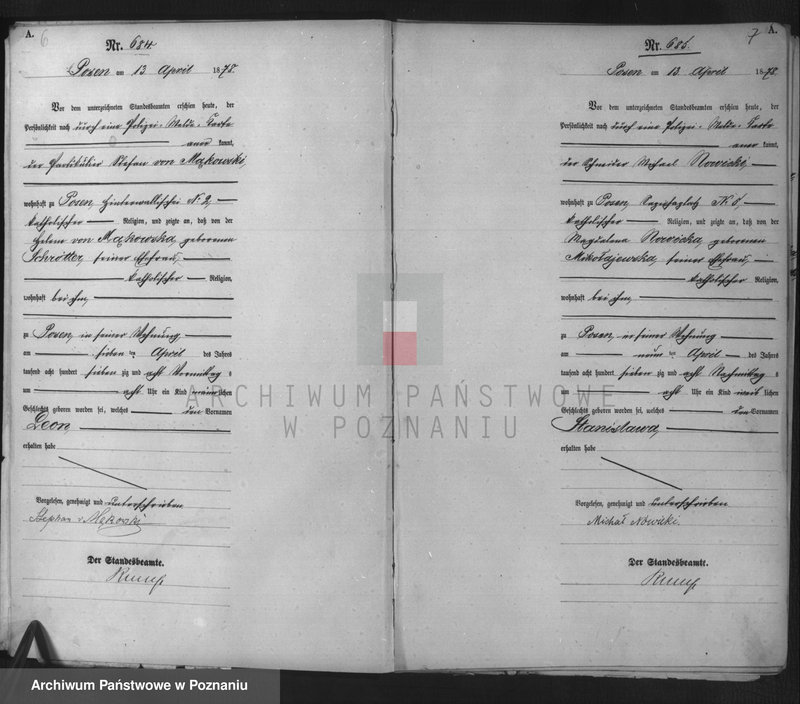 A.
6
Nr. 684
Posen am 13 April 1878
Vor dem unterzeichneten Standesbeamten erschien heute, der
Persönlichkeit nach durch eine Polizei-Melde-Karte
aner kannt,
der Partikulier Stefan von Mąkowski,
wohnhaft zu Posen, Hinterwallischei N: 2,
katholischer Religion, und zeigte an, daß von der
Helena von Mąkowska geborenen
Schrötter, seiner Ehefrau,
katholischer Religion,
wohnhaft bei ihm,
zu Posen, in seiner Wohnung
am sieben ten April des Jahres
tausend acht hundert sieben zig und acht Vormittag s
um acht Uhr ein Kind männ lichen
Geschlechts geboren worden sei, welches den Vornamen
Leon,
erhalten habe
Vorgelesen, genehmigt und unterschrieben
Stephan v Mąkowski
Der Standesbeamte.
A.
7
Nr. 685.
Posen am 13 April 1878
Vor dem unterzeichneten Standesbeamten erschien heute, der
Persönlichkeit nach durch eine Polizei-Melde-Karte
aner kannt,
der Schneider Michael Nowicki,
wohnhaft zu Posen,
katholischer Religion, und zeigte an, daß von der
Magdalena Nowicka, geborenen
Mikołajewska, seiner Ehefrau,
katholischer Religion,
wohnhaft bei ihm,
zu Posen, in seiner Wohnung
am neun ten April des Jahres
tausend acht hundert sieben zig und acht Nachmittag s
um acht Uhr ein Kind weib lichen
Geschlechts geboren worden sei, welches den Vornamen
Stanisława,
erhalten habe
Vorgelesen, genehmigt und unterschrieben
Michał Nowicki.
Der Standesbeamte.
ARCHIWUM PAŃSTWOWE
W POZNANIU
Archiwum Państwowe w Poznaniu